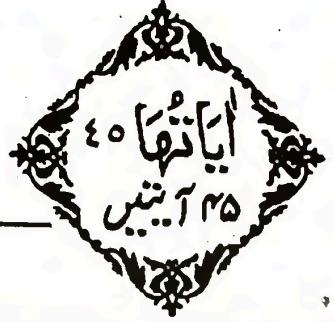 اٰيَاتُهَا ٤٥
۴۵ آیتیں